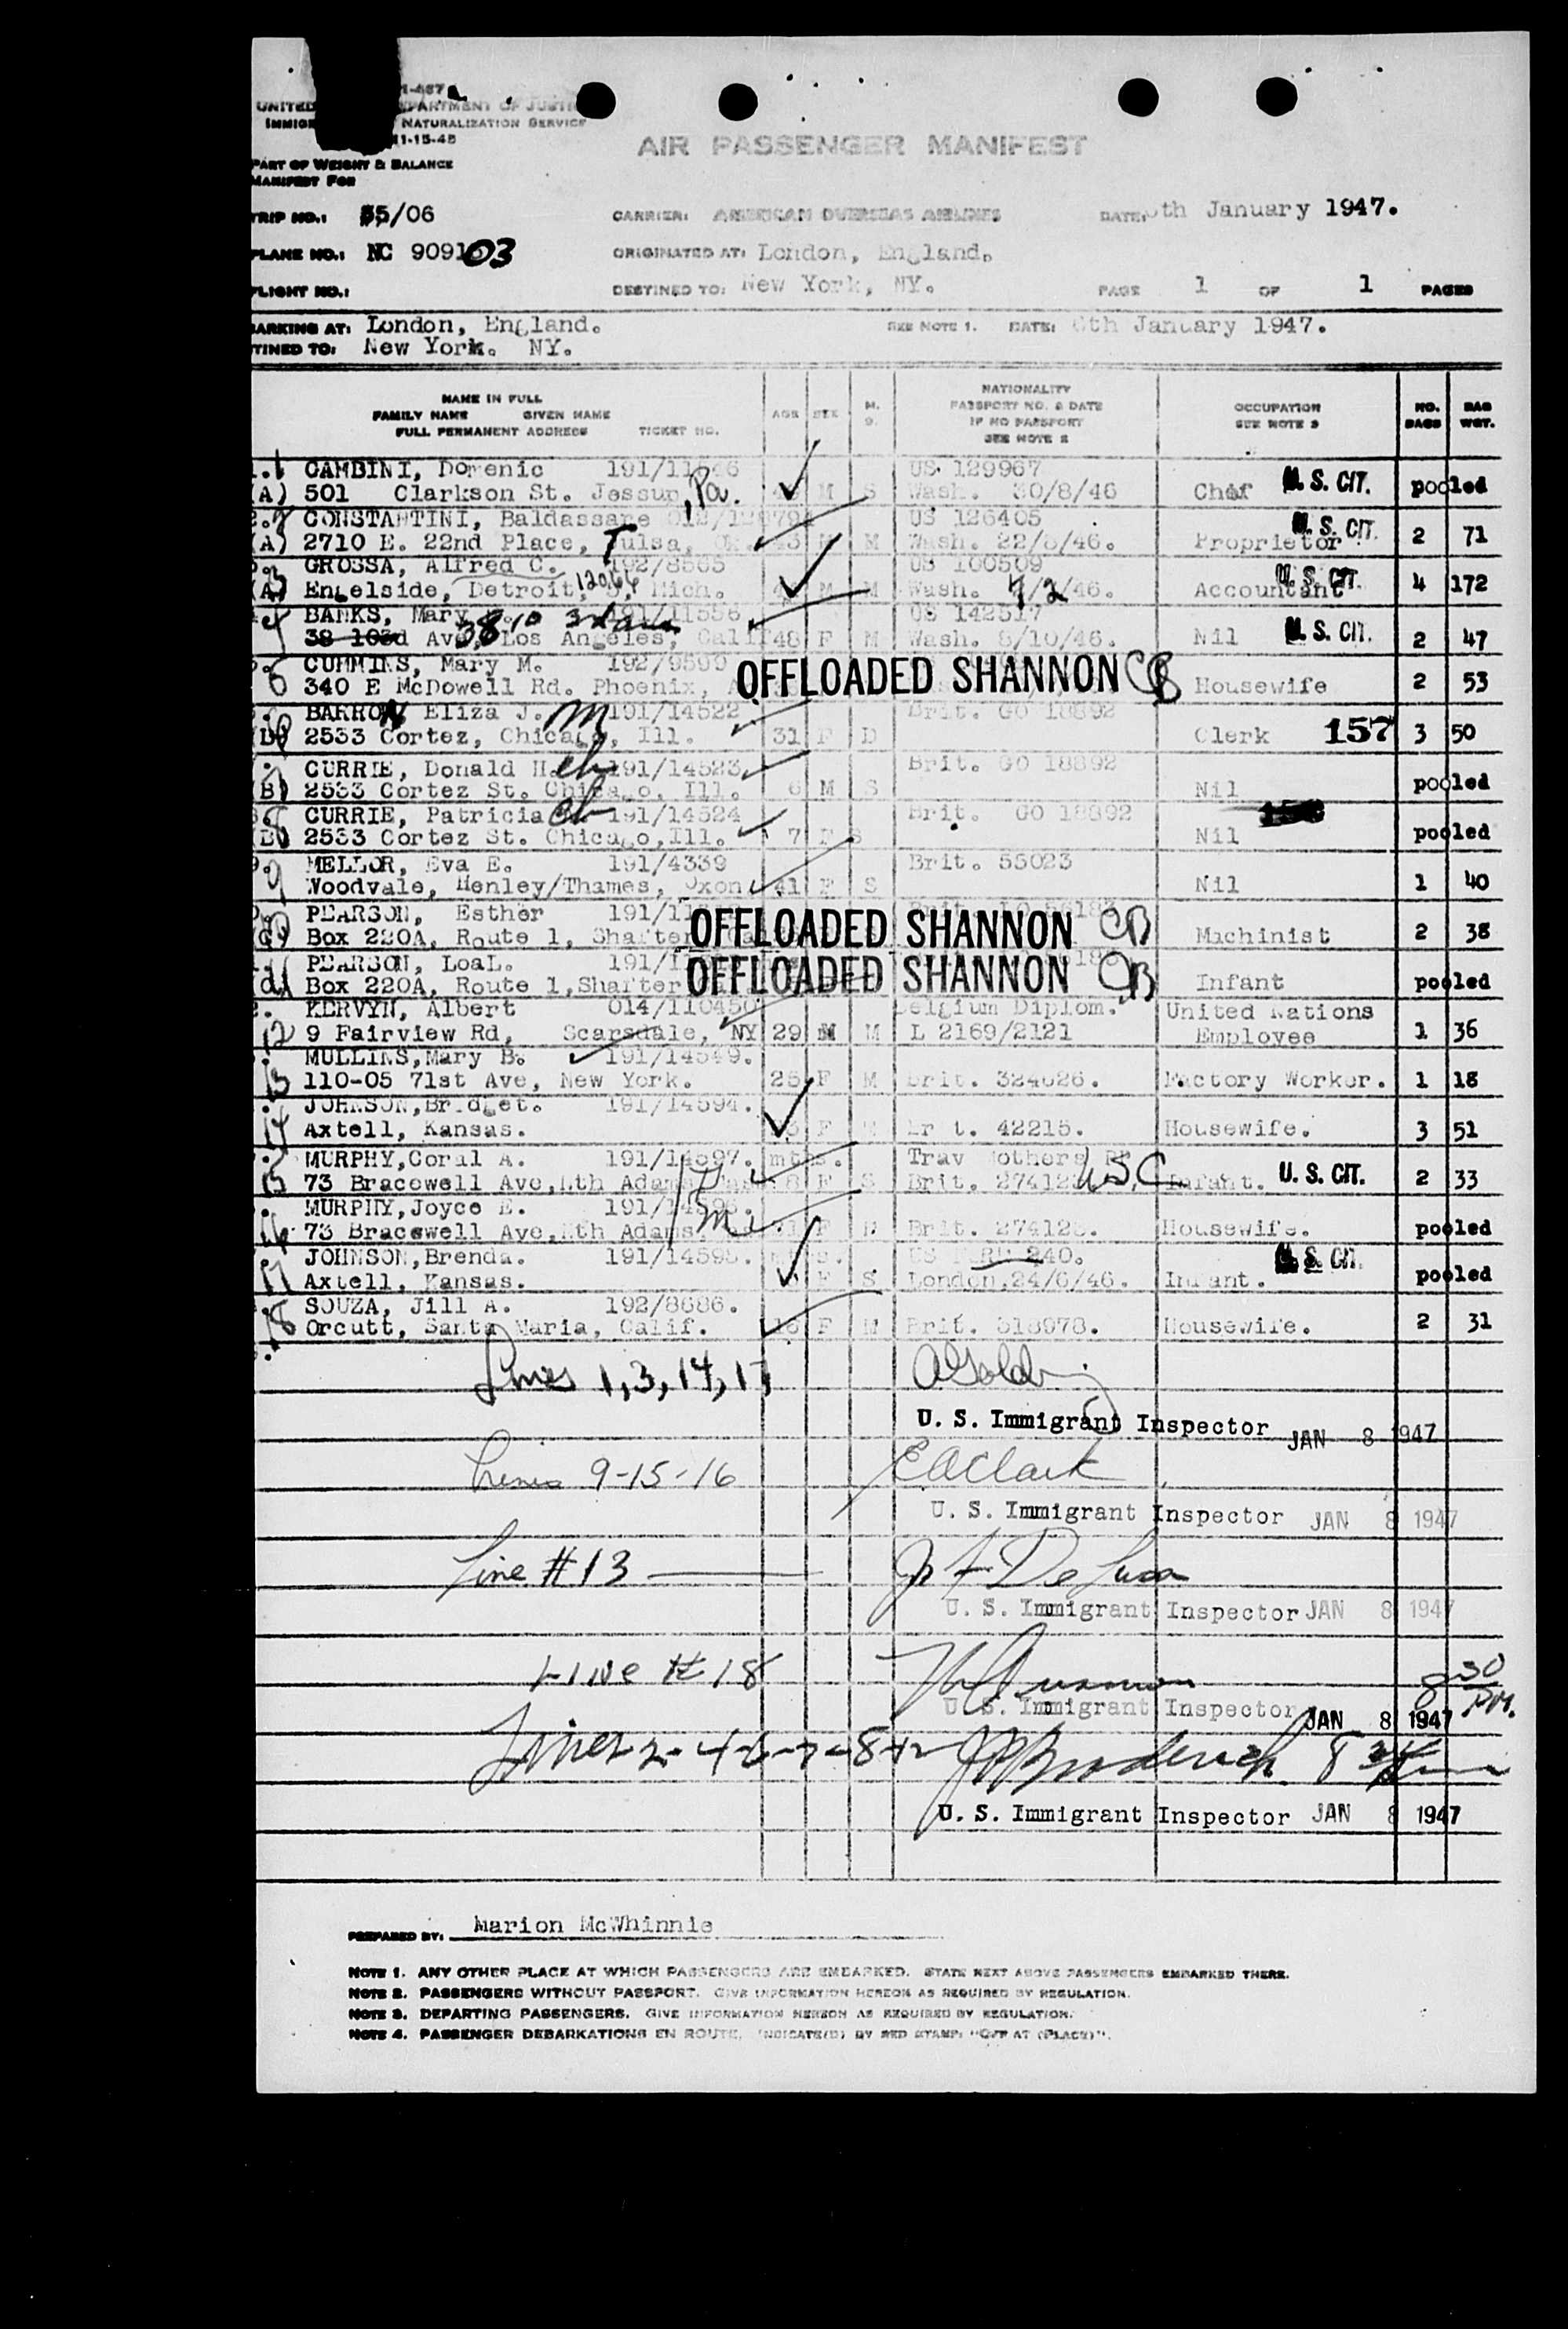 1-467
UNITED DEPARTMENT OF JUSTICE
IMMIGR NATURALIZATION SERVICE
11-15-45
PART OF WEIGHT & BALANCE
MANIFEST FOR
AIR PASSENGER MANIFEST
TRIP NO.: 55/06 CARRIER: AMERICAN OVERSEAS AIRLINES DATE: th January 1947.
PLANE NO.: NC 909103 ORIGINATED AT: London, England.
FLIGHT NO.: DESTINED TO: New York, NY. PAGE 1 OF 1 PAGES
BARKING AT: London, England. SEE NOTE 1. DATE: 6th January 1947.
TINED TO: New York. NY.
NAME IN FULL
FAMILY NAME GIVEN NAME
FULL PERMANENT ADDRESS TICKET NO. AGE SEX M. S. NATIONALITY
PASSPORT NO. & DATE
IF NO PASSPORT
SEE NOTE 2
OCCUPATION
SEE NOTE 3
NO. BAGS BAG WGT.
1 GAMBINI, Domenic US 129967
(A) 501 Clarkson St. Jessup, Pa. M S Wash. 30/8/46 Chef U. S. CIT. pooled
2 CONSTANTINI, Baldassare US 126405
(A) 2710 E. 22nd Place, Tulsa, Ok. 43 M M Wash. 22/8/46. Proprietor U. S. CIT. 2 71
3 GROSSA, Alfred C. 192/8565 US 100509
(A) Engelside, Detroit, 12066 Mich. M M Wash. 4/2/46. Accountant U. S. CIT. 4 172
4 BANKS, Mary 191/11556 US 142517
38 103d Ave, 3810 Los Angeles, Calif 48 F M Wash. 8/10/46. Nil U. S. CIT. 2 47
5 CUMMINS, Mary M. 192/9590
340 E McDowell Rd. Phoenix, OFFLOADED SHANNON CB Housewife 2 53
6 BARRON, Eliza J. M 191/14522 Brit. GO 18892
2533 Cortez, Chicago, Ill. 31 F D Clerk 157 3 50
7 CURRIE, Donald H. ch 191/14523 Brit. GO 18892
(B) 2533 Cortez St. Chicago, Ill. 6 M S Nil pooled
8 CURRIE, Patricia ch 191/14524 Brit. GO 18892
2533 Cortez St. Chicago, Ill. 7 F S Nil pooled
9 MELLOR, Eva E. 191/4339 Brit. 55023
Woodvale, Henley/Thames, Oxon 41 F S Nil 1 40
10 PEARSON, Esther
Box 220A, Route 1, Shafter OFFLOADED SHANNON CB Machinist 2 38
11 PEARSON, LoaL.
Box 220A, Route 1, Shafter OFFLOADED SHANNON CB Infant pooled
KERVYN, Albert 014/110450 Belgium Diplom. United Nations
12 9 Fairview Rd, Scarsdale, NY 29 M M L 2169/2121 Employee 1 36
MULLINS, Mary B. 191/14549.
13 110-05 71st Ave, New York. 25 F M Brit. 324626. Factory Worker. 1 18
JOHNSON, Bridget. 191/14594.
14 Axtell, Kansas. F Brit. 42215. Housewife. 3 51
MURPHY, Coral A. 191/14597. mths. Trav Mothers
15 73 Bracewell Ave, Nth Adams 8 F S Brit. 274128 U.S.C. Infant. U. S. CIT. 2 33
MURPHY, Joyce E.
16 73 Bracewell Ave, Nth Adams F Brit. 274128. Housewife. pooled
JOHNSON, Brenda. 191/14595. 240.
17 Axtell, Kansas. F S London, 24/6/46. Infant. U. S. CIT. pooled
SOUZA, Jill A. 192/8686.
18 Orcutt, Santa Maria, Calif. F M Brit. 318978. Housewife. 2 31
Lines 1, 3, 14, 17
U. S. Immigrant Inspector JAN 8 1947
Lines 9-15-16 EAClark
U. S. Immigrant Inspector JAN 8 1947
Line #13 De Luca
U. S. Immigrant Inspector JAN 8 1947
Line #18 8 30 PM.
U. S. Immigrant Inspector JAN 8 1947
Lines 2-4-6-7-8-12 JBroderick
U. S. Immigrant Inspector JAN 8 1947
PREPARED BY: Marion McWhinnie
NOTE 1. ANY OTHER PLACE AT WHICH PASSENGERS ARE EMBARKED. STATE NEXT ABOVE PASSENGERS EMBARKED THERE.
NOTE 2. PASSENGERS WITHOUT PASSPORT. GIVE INFORMATION HEREON AS REQUIRED BY REGULATION.
NOTE 3. DEPARTING PASSENGERS. GIVE INFORMATION HEREON AS REQUIRED BY REGULATION.
NOTE 4. PASSENGER DEBARKATIONS EN ROUTE. INDICATE(D) BY RED STAMP: "OFF AT (PLACE)".